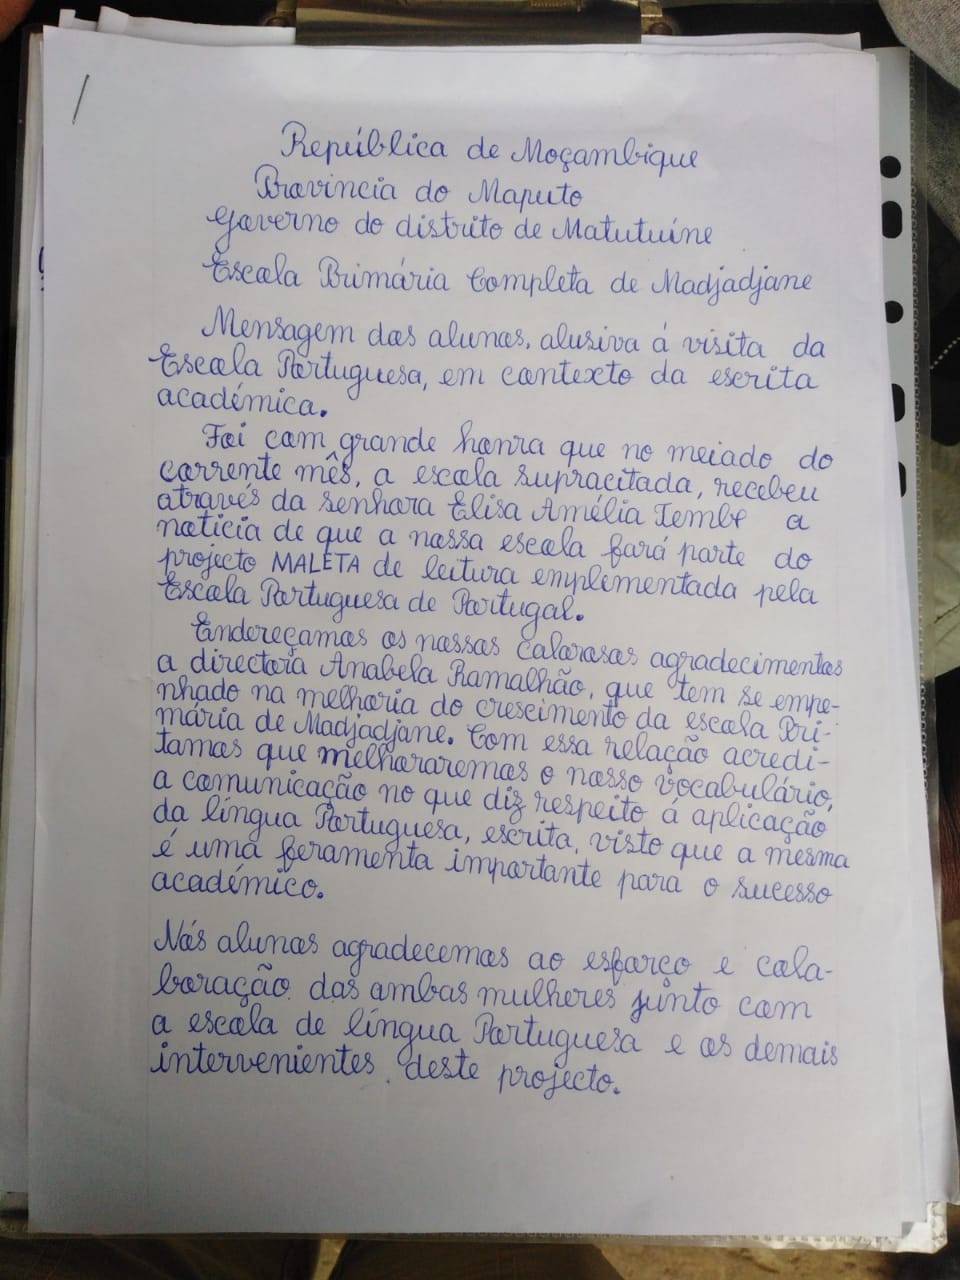 República de Moçambique
Província do Maputo
Governo do distrito de Matutuíne
Escola Primária Completa de Madjadjane
Mensagem dos alunos, alusiva á visita da
Escola Portuguesa, em contexto da escrita
académica.
Foi com grande honra que no meiado do
corrente mês, a escola supracitada, recebeu
através da senhora Elisa Amélia Tembe a
notícia de que a nossa escola fará parte do
projecto MALETA de leitura emplementada pela
Escola Portuguesa de Portugal.
Endereçamos os nossos calorosos agradecimentos
a directora Anabela Ramalhão, que tem se empe-
nhado na melhoria do crescimento da escola Pri-
mária de Madjadjane. Com essa relação acredi-
tamos que melhoraremos o nosso vocabulário,
a comunicação no que diz respeito á aplicação
da língua Portuguesa, escrita, visto que a mesma
é uma feramenta importante para o sucesso
académico.
Nós alunos agradecemos ao esforço e cola-
boração das ambas mulheres junto com
a escola de língua Portuguesa e os demais
intervenientes deste projecto.